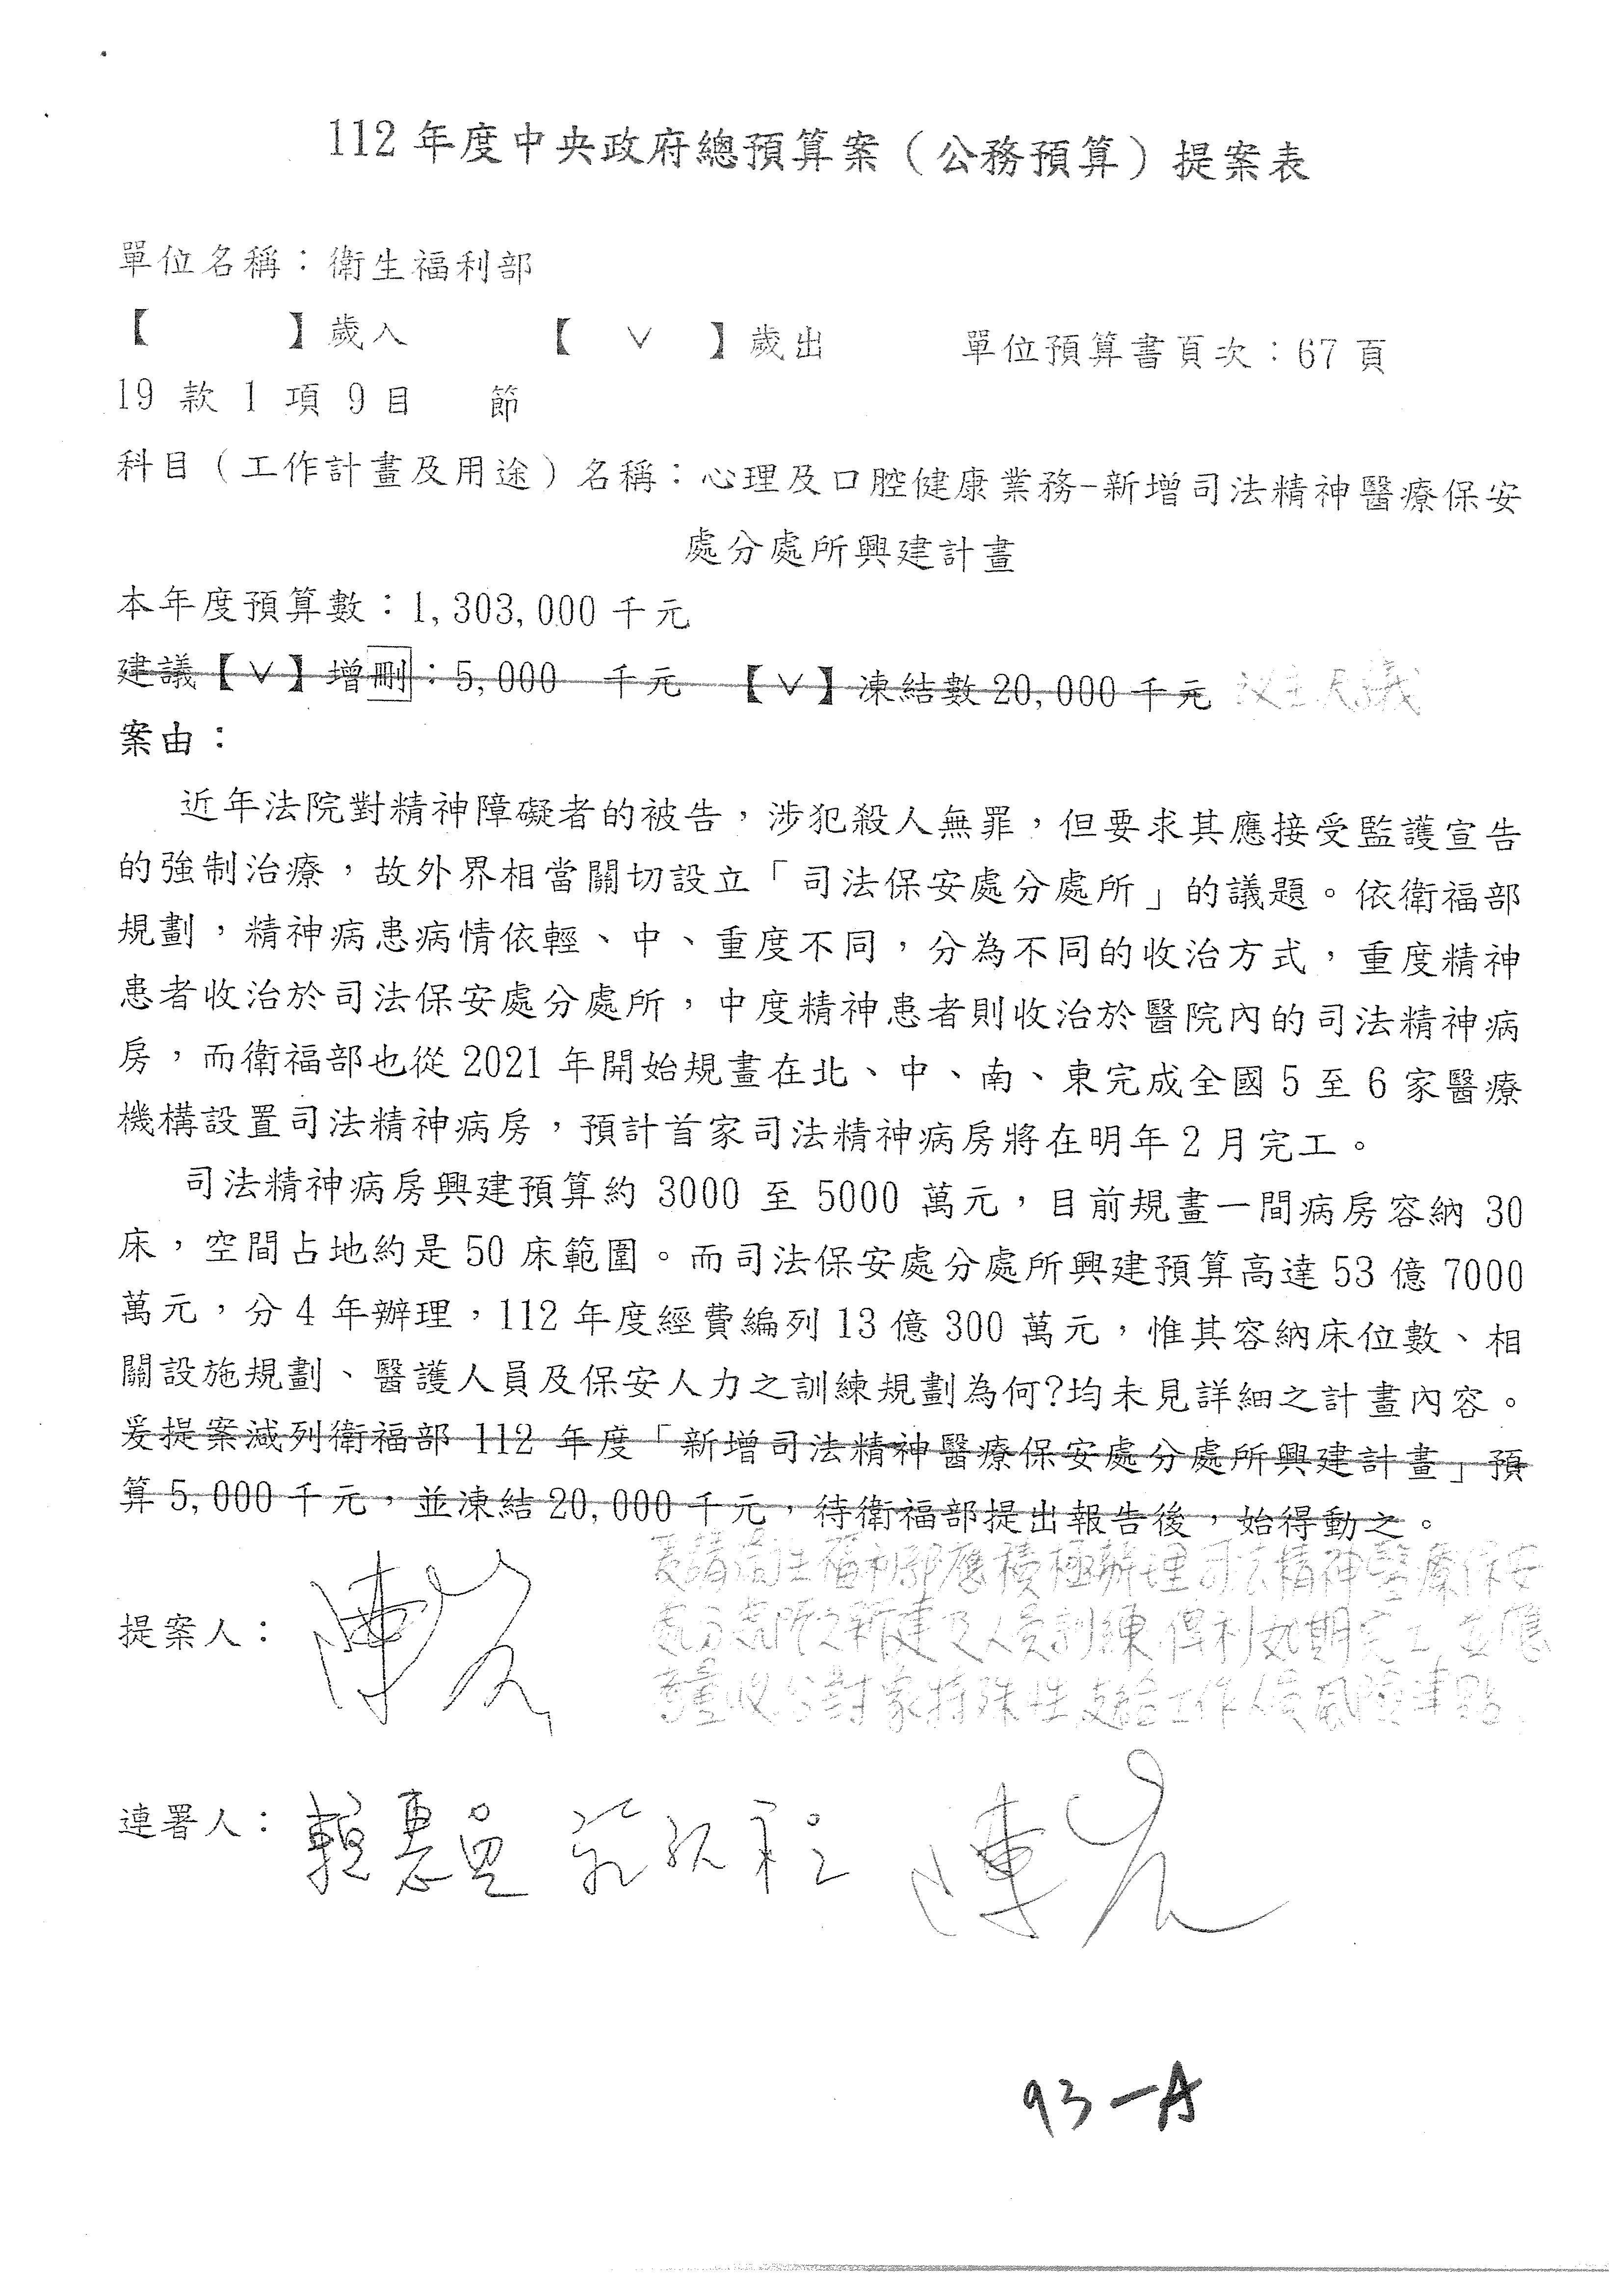 112 年度中央政府總預算案（公務預算）提案表
單位名稱：衛生福利部
【　　】歲入　【 ∨ 】歲出　單位預算書頁次：67 頁
19 款 1 項 9 目　節
科目（工作計畫及用途）名稱：心理及口腔健康業務-新增司法精神醫療保安
處分處所興建計畫
本年度預算數：1,303,000 千元
建議【∨】增刪：5,000　千元　【∨】凍結數 20,000 千元 改主決議
案由：
近年法院對精神障礙者的被告，涉犯殺人無罪，但要求其應接受監護宣告
的強制治療，故外界相當關切設立「司法保安處分處所」的議題。依衛福部
規劃，精神病患病情依輕、中、重度不同，分為不同的收治方式，重度精神
患者收治於司法保安處分處所，中度精神患者則收治於醫院內的司法精神病
房，而衛福部也從 2021 年開始規畫在北、中、南、東完成全國 5 至 6 家醫療
機構設置司法精神病房，預計首家司法精神病房將在明年 2 月完工。
司法精神病房興建預算約 3000 至 5000 萬元，目前規畫一間病房容納 30
床，空間占地約是 50 床範圍。而司法保安處分處所興建預算高達 53 億 7000
萬元，分 4 年辦理，112 年度經費編列 13 億 300 萬元，惟其容納床位數、相
關設施規劃、醫護人員及保安人力之訓練規劃為何?均未見詳細之計畫內容。
爰提案減列衛福部 112 年度「新增司法精神醫療保安處分處所興建計畫」預
算 5,000 千元，並凍結 20,000 千元，待衛福部提出報告後，始得動之。
爰請衛生福利部應積極辦理司法精神醫療保安
處分處所之新建及人員訓練俾利如期完工並應
考量收治對象特殊性支給工作人員風險津貼
提案人：陳
連署人：賴惠員 莊 程 陳
93-A